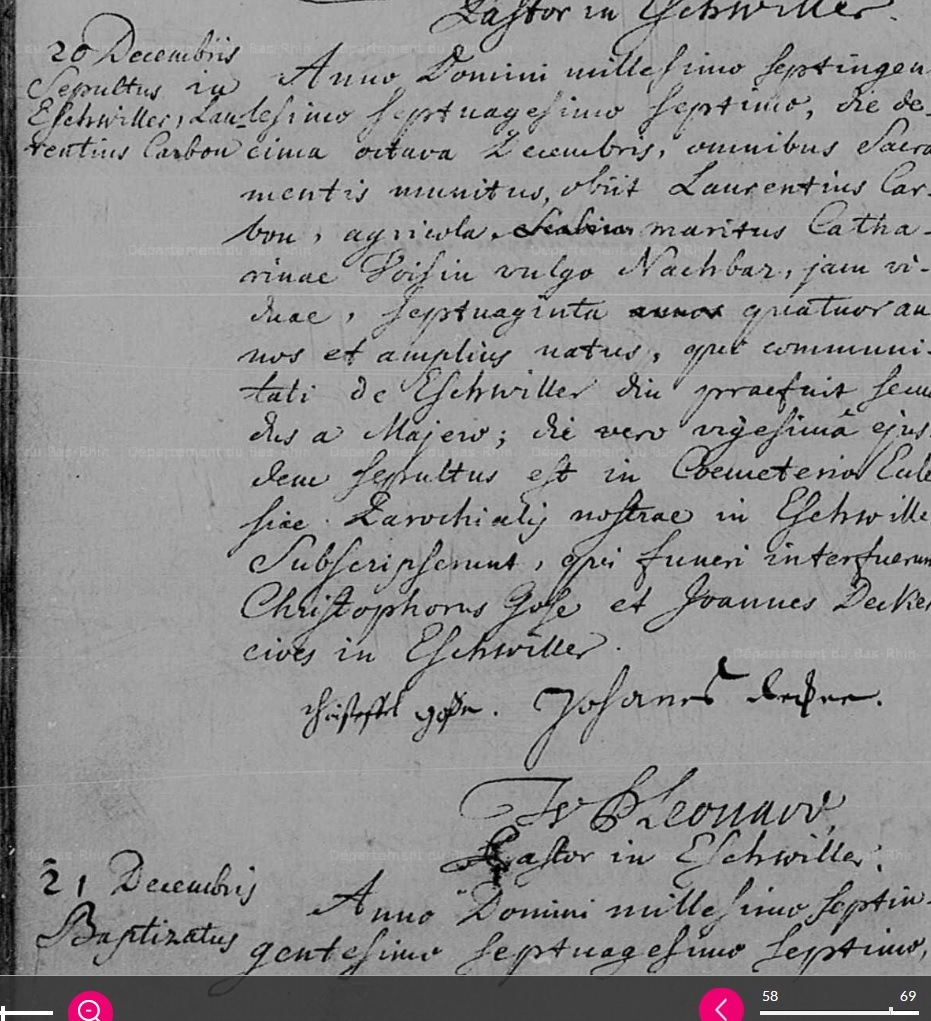 Pastor in Eschwiller.
20 Decembris
Sepultus in
Eschwiller, Lau-
rentius Carbon
Anno Domini millesimo septingen
tesimo septuagesimo septimo, die de-
cima octava Decembris, omnibus Sacra
mentis munitus, obiit Laurentius Car-
bon, agricola, maritus Catha-
rinae Voisin vulgo Nachbar, jam vi-
duae, septuaginta annos quatuor an
nos et amplius natus, qui communi-
tati de Eschwiller diu praefuit
dus a Majero; die vero vigesimâ ejus
dem sepultus est in Coemeterio Eccle
siae Parochialis nostrae in Eschwille
Subscripserunt, qui funeri interfuerun
Christophorus Gose et Joannes Decker
cives in Eschwiller.
Johanes decker.
Leonard
Pastor in Eschwiller.
21 Decembris
Baptizatus
Anno Domini millesimo septin-
gentesimo septuagesimo septimo,
58 69